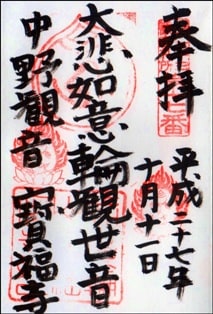 奉拝
平成二十七年
十月十一日
大悲如意輪観世音
中野観音 寶福寺